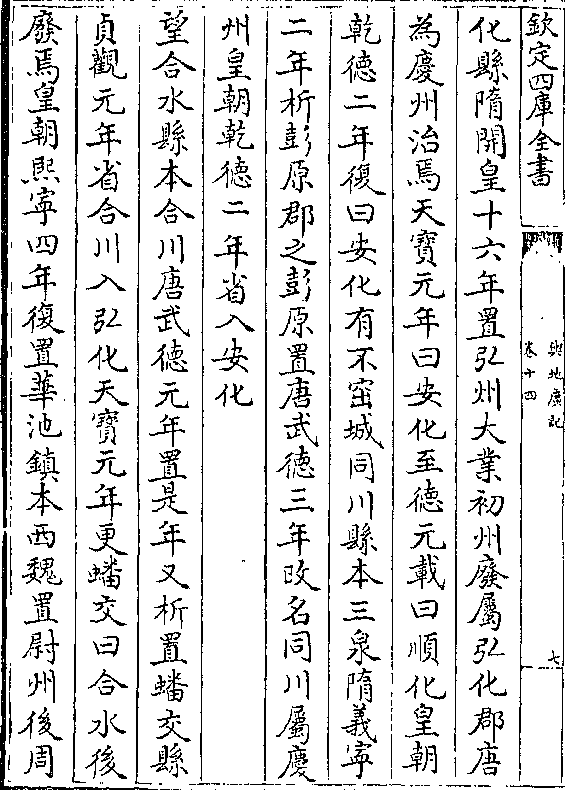 欽定四庫全書
輿地廣記
卷十四
七
化縣隋開皇十六年置弘州大業初州廢屬弘化郡唐
為慶州治焉天寶元年曰安化至德元載曰順化皇朝
乾德二年復曰安化有不窋城同川縣本三泉隋義寧
二年析彭原郡之彭原置唐武德三年改名同川屬慶
州皇朝乾德二年省入安化
望合水縣本合川唐武德元年置是年又析置蟠交縣
貞觀元年省合川入弘化天寶元年更蟠交曰合水後
廢焉皇朝熙寧四年復置華池鎮本西魏置尉州後周